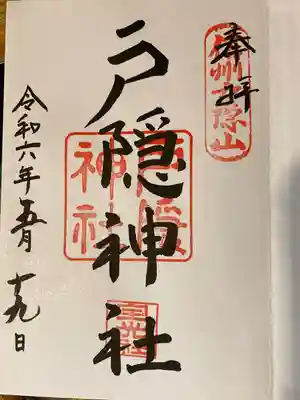 奉拝
信州戸隠山
戸隠神社
戸隠神社
宝光社
令和六年五月十九日